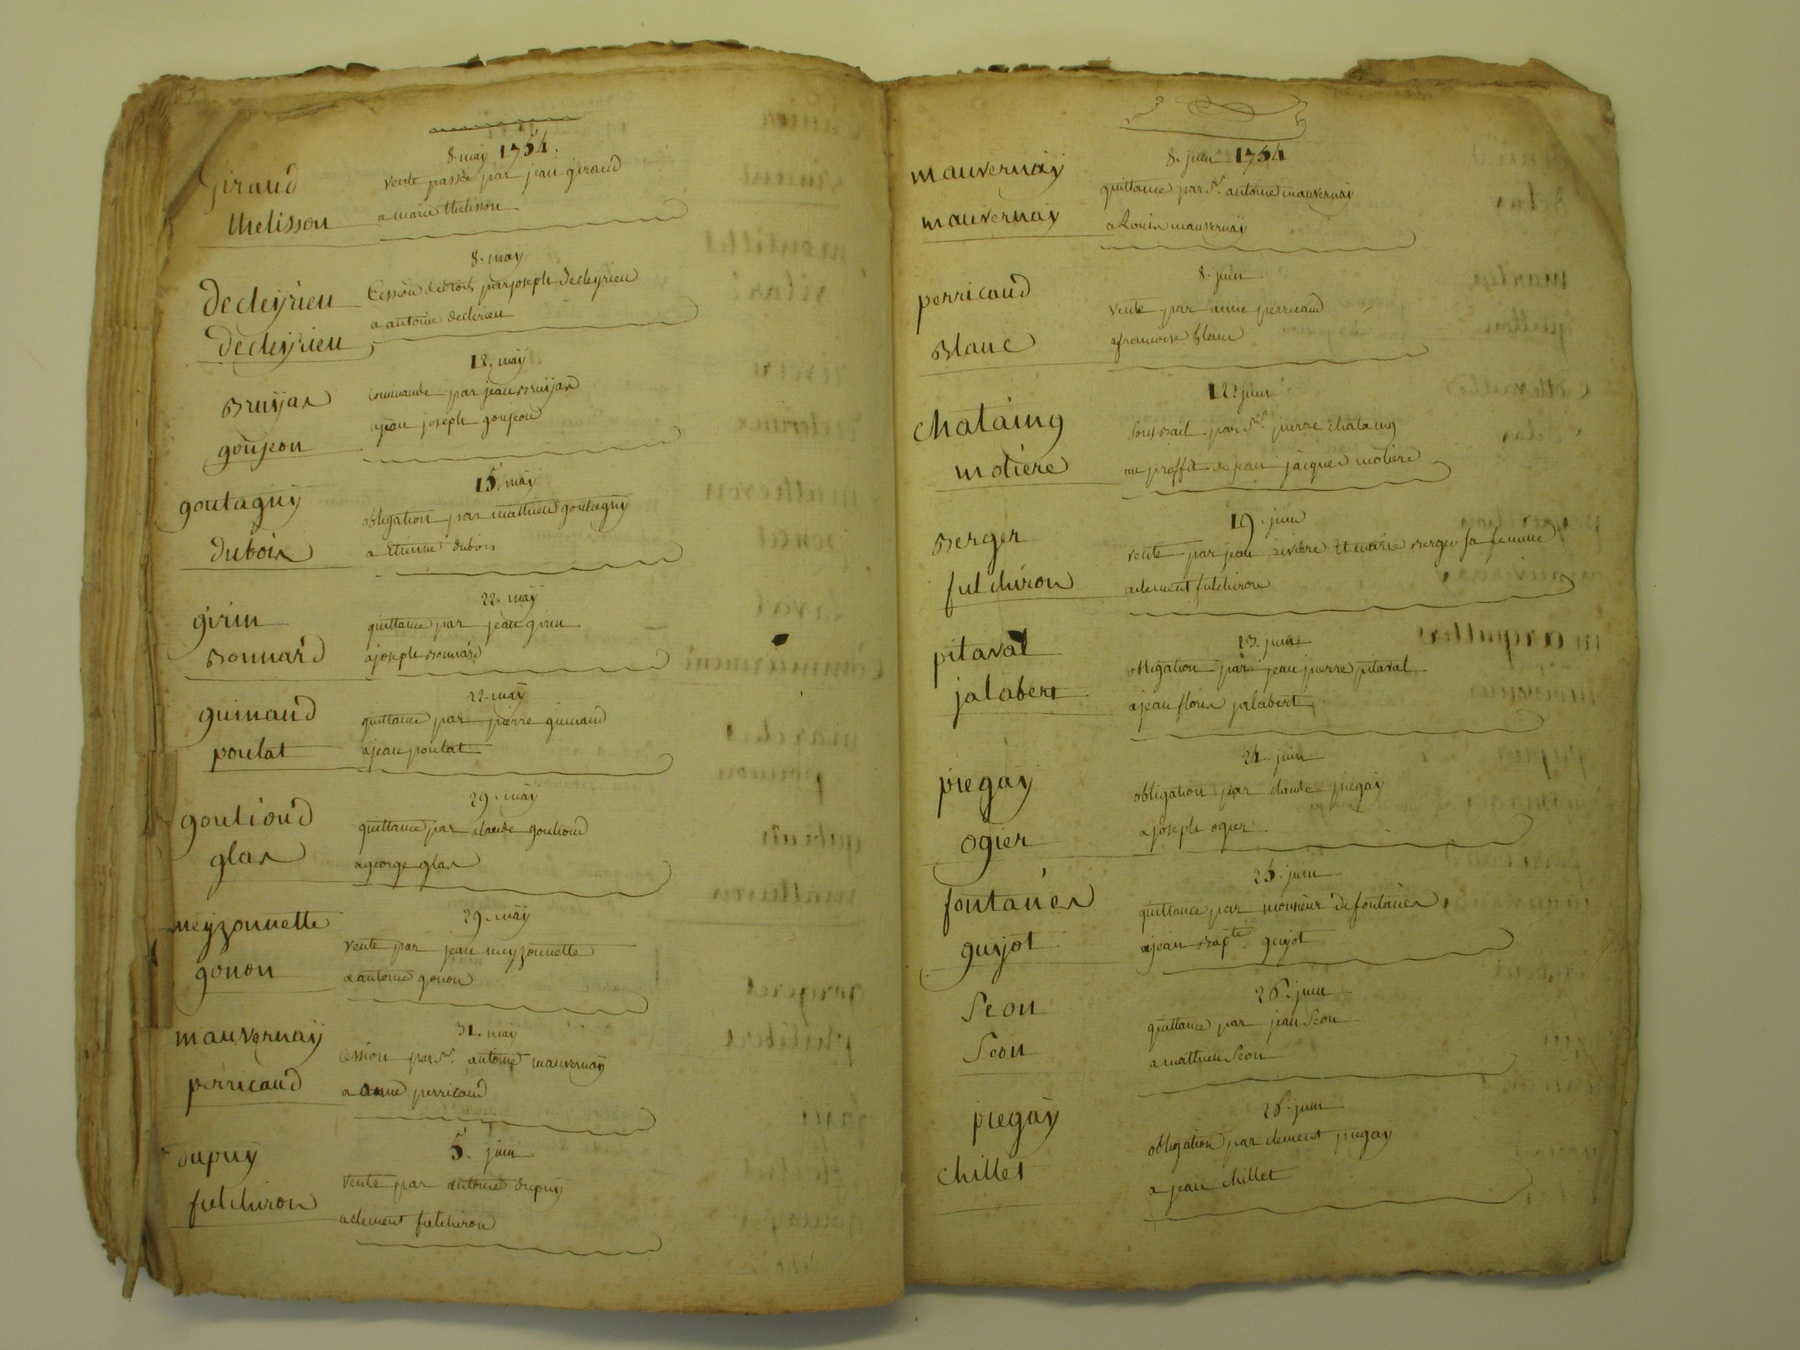 8 may 1754.
Giraud
thelisson
vente passée par jean giraud
a marie thelisson
8. may
decleyrieu
decleyrieu
Cession par joseph decleyrieu
a antoine declerieu
12. may
Bruyas
goujeon
commande par jean Bruyas
a jean joseph goujeon
15. may
goutagny
dubois
obligation par mathieu goutagny
a Etienne dubois
22. may
girin
Bonnard
quittance par jean girin
a joseph Bonnard
22. may
guinaud
poulat
quittance par pierre guinaud
a jean poulat
29. may
goutioud
glas
quittance par claude goutioud
a george glas
29. may
meyzonnette
gonon
vente par jean meyzonnette
a antoine gonon
31. may
mauvernay
perricaud
Cession par Sr. antoine mauvernay
a anne perricaud
5. juin
dupuy
fulchiron
vente par antoine dupuy
a clement fulchiron
8. juin 1754
mauvernay
mauvernay
quittance par Sr. antoine mauvernay
a Louis mauvernay
8. juin
perricaud
Blanc
vente par anne perricaud
a francoise blanc
12. juin
chataing
motiere
sousbail par Sr. pierre chataing
au proffit de jean jacques motiere
19. juin
Berger
fulchiron
vente par jean riviere Et marie Berger sa femme
a clement fulchiron
23. juin
pitaval
jalabert
obligation par jean pierre pitaval
a jean floris jalabert
24. juin
piegay
ogier
obligation par claude piegay
a joseph ogier
25. juin
fontanés
guyot
quittance par monsieur de fontanés,
a jean Bapte. guyot
26. juin
Seon
Seon
quittance par jean Seon
a mathieu Seon
26. juin
piegay
chillet
obligation par clement piegay
a jean chillet